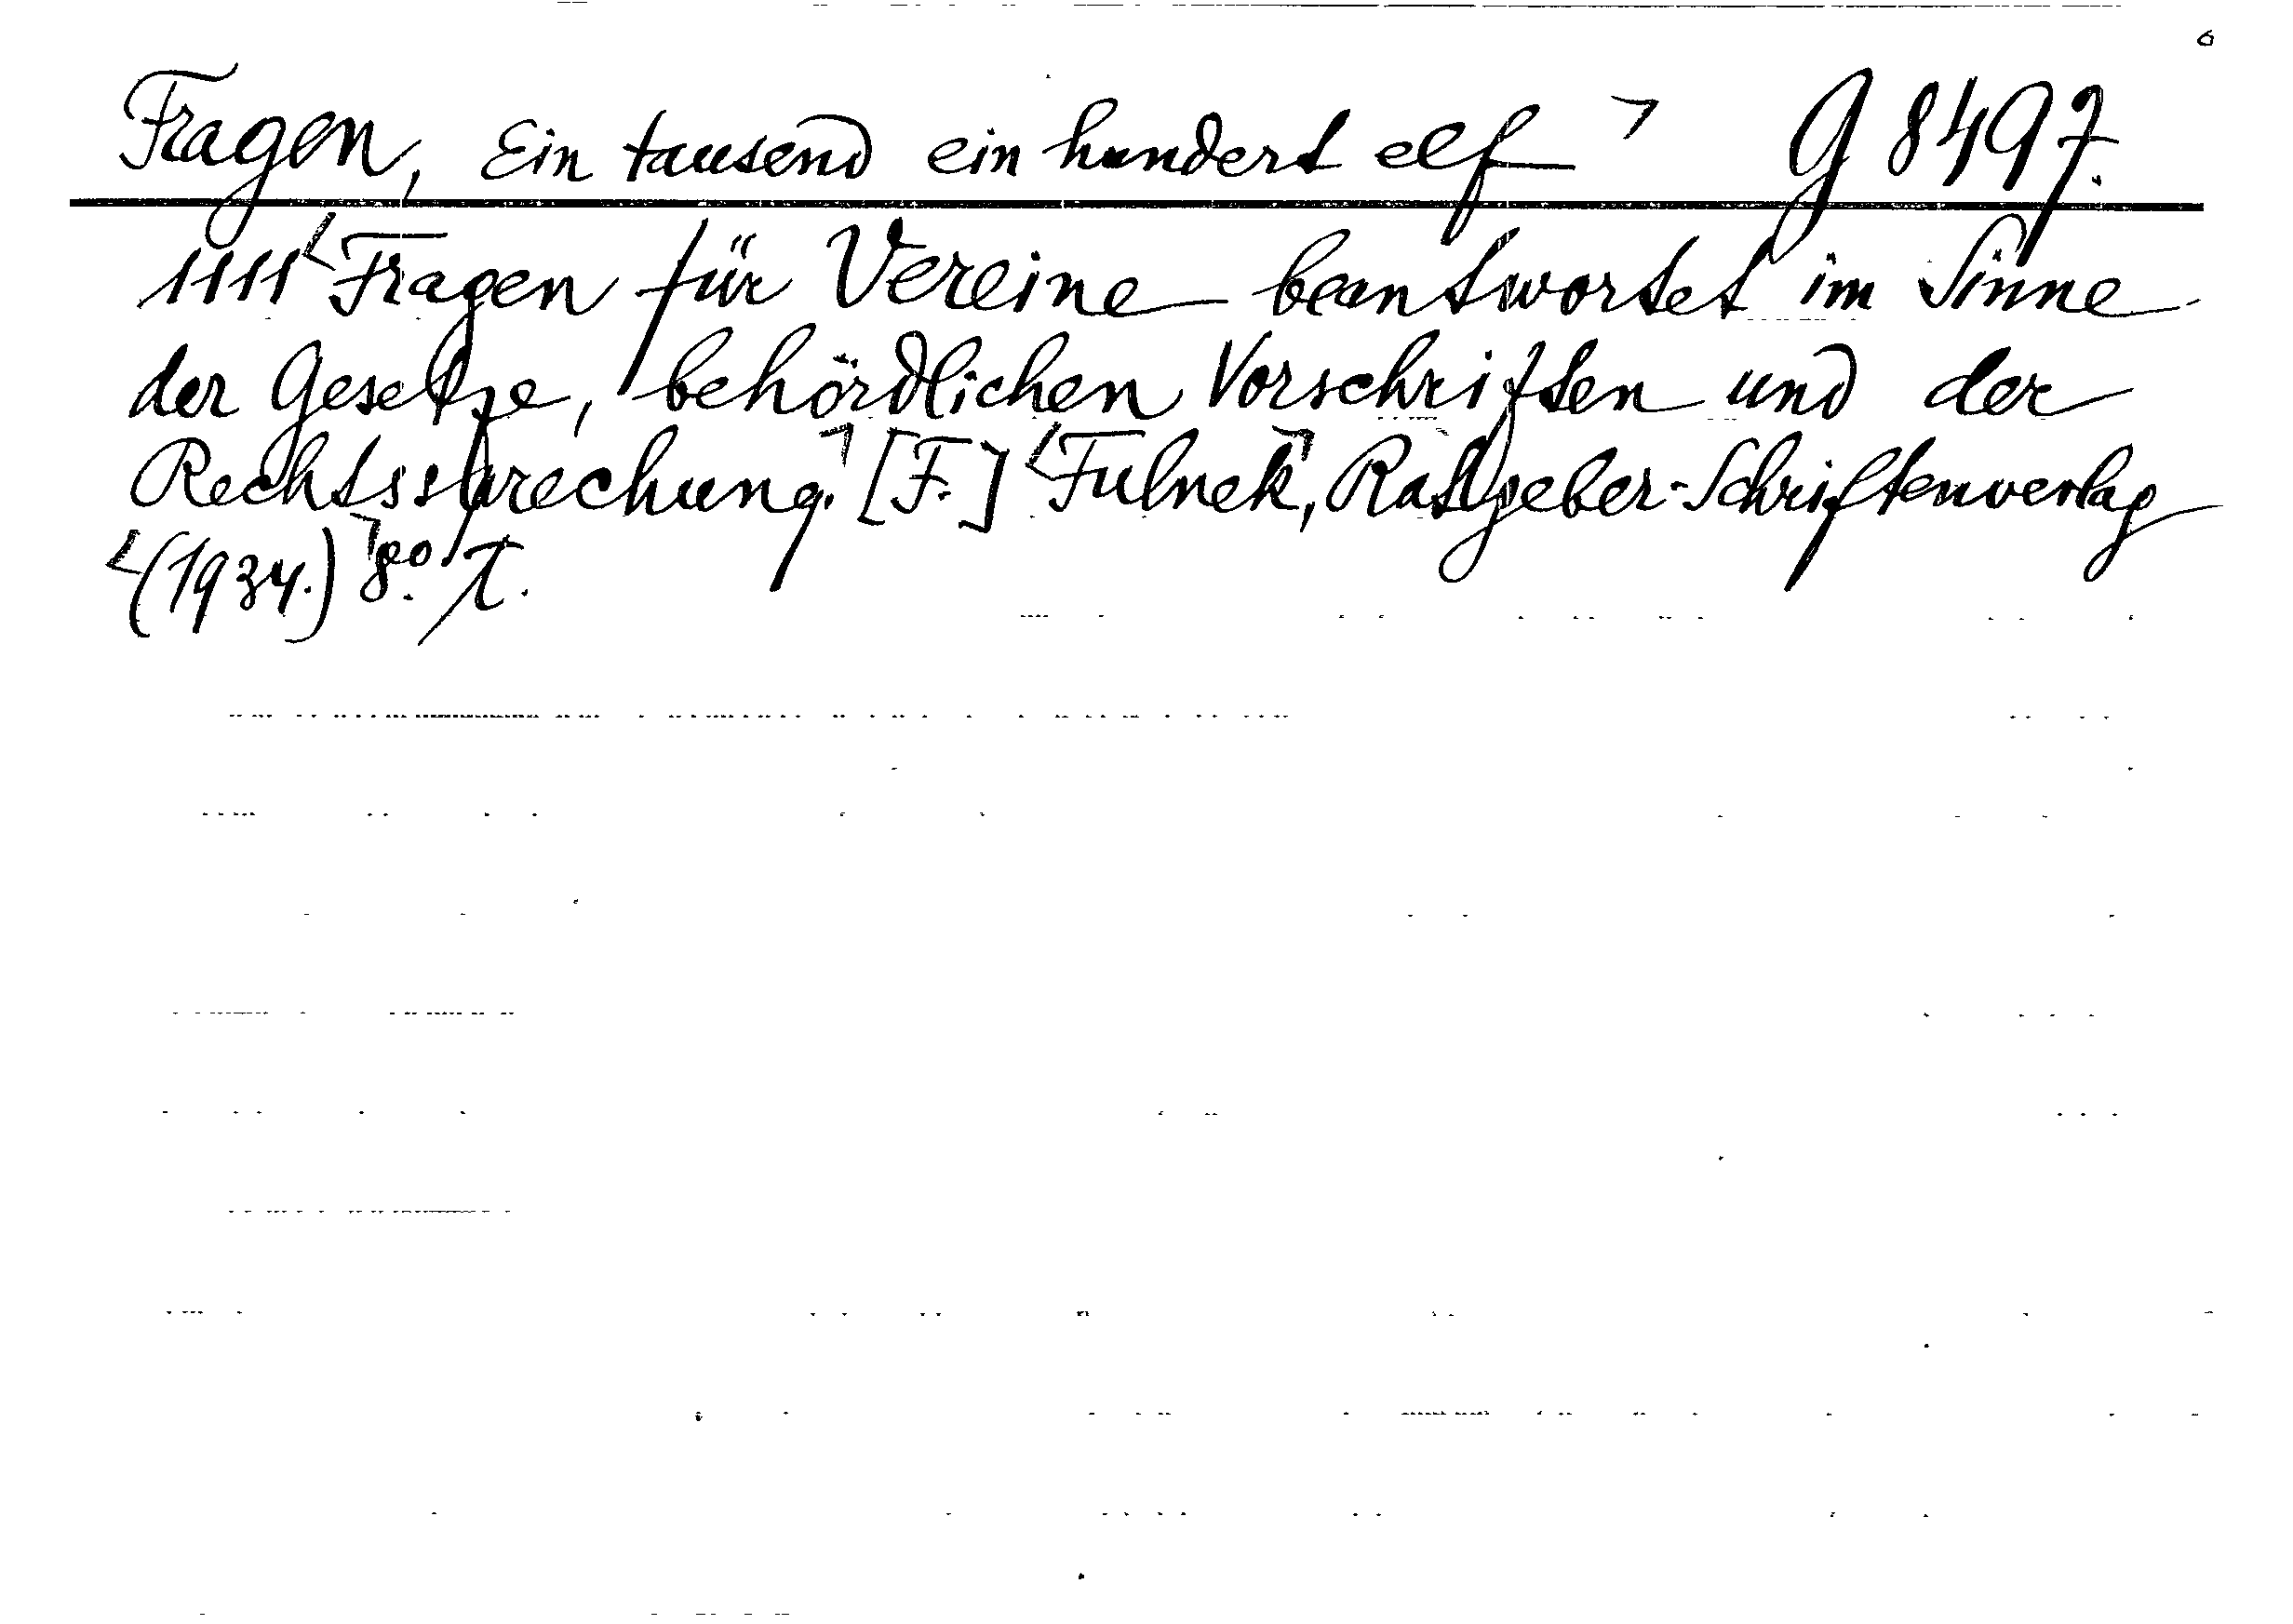 Fragen, Ein tausend ein hundert elf ⌝ G 8497.
1111 ⌞Fragen für Vereine beantwortet im Sinne
der Gesetze, behördlichen Vorschriften und der
Rechtssprechung.⌝ [F.] ⌞Fulnek⌝, Ratgeber-Schriftenverlag
⌞(1934.)⌝ 8o. T.